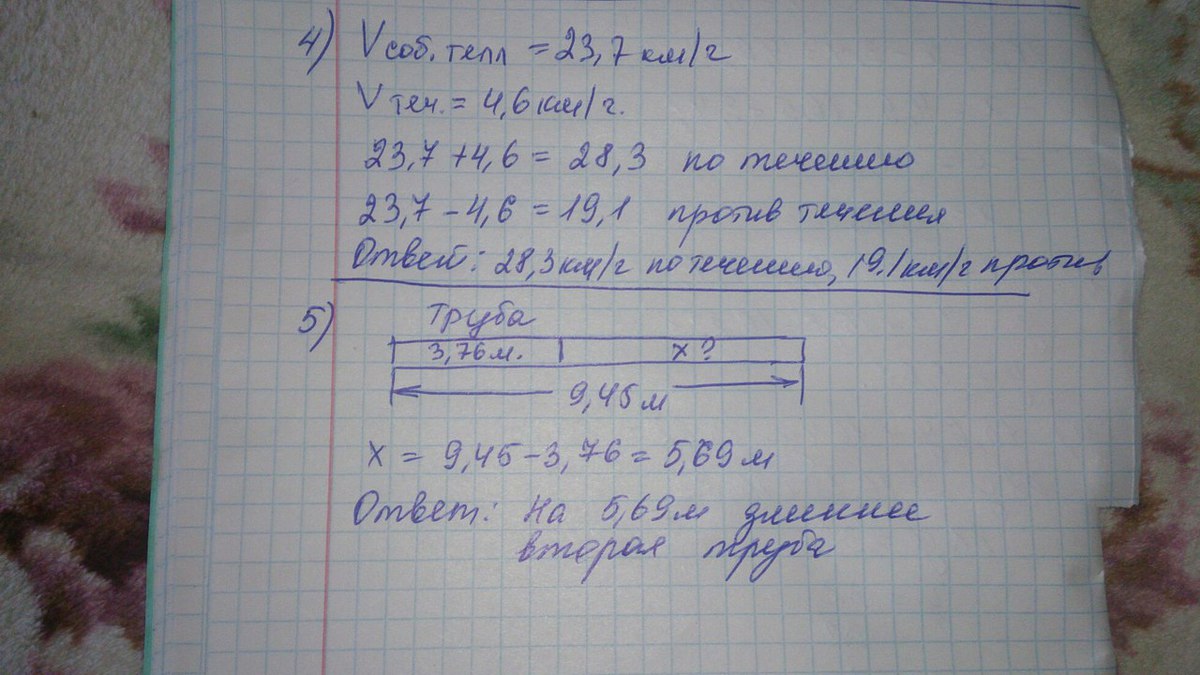 4) Vсоб. тепл = 23,7 км/г
Vтеч. = 4,6 км/г.
23,7 + 4,6 = 28,3 по течению
23,7 - 4,6 = 19,1 против течения
Ответ: 28,3 км/г по течению, 19.1 км/г против
5) Труба
3,76 м. x ?
9,45 м
x = 9,45 - 3,76 = 5,69 м
Ответ: На 5,69 м длиннее
вторая труба